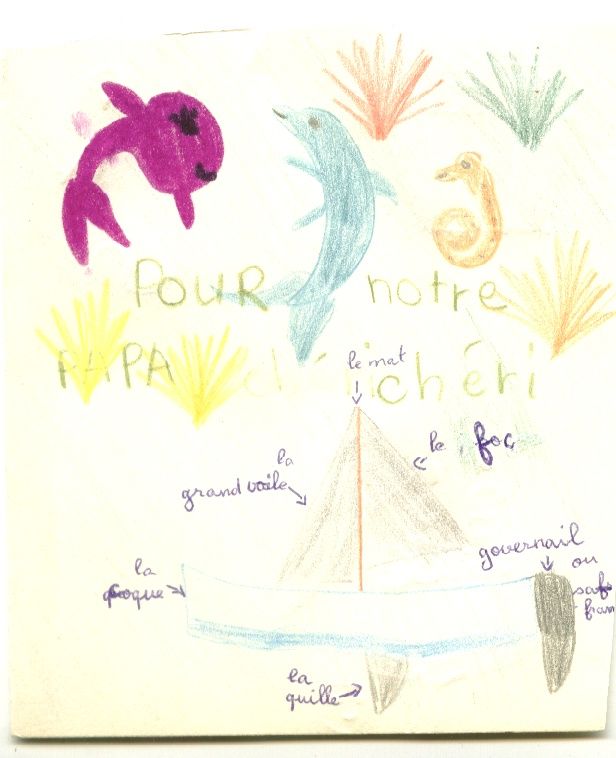 POUR notre
PAPA chéri
le mat
le foc
la
grand voile
governail
ou
saf
fran
la
coque
la
quille